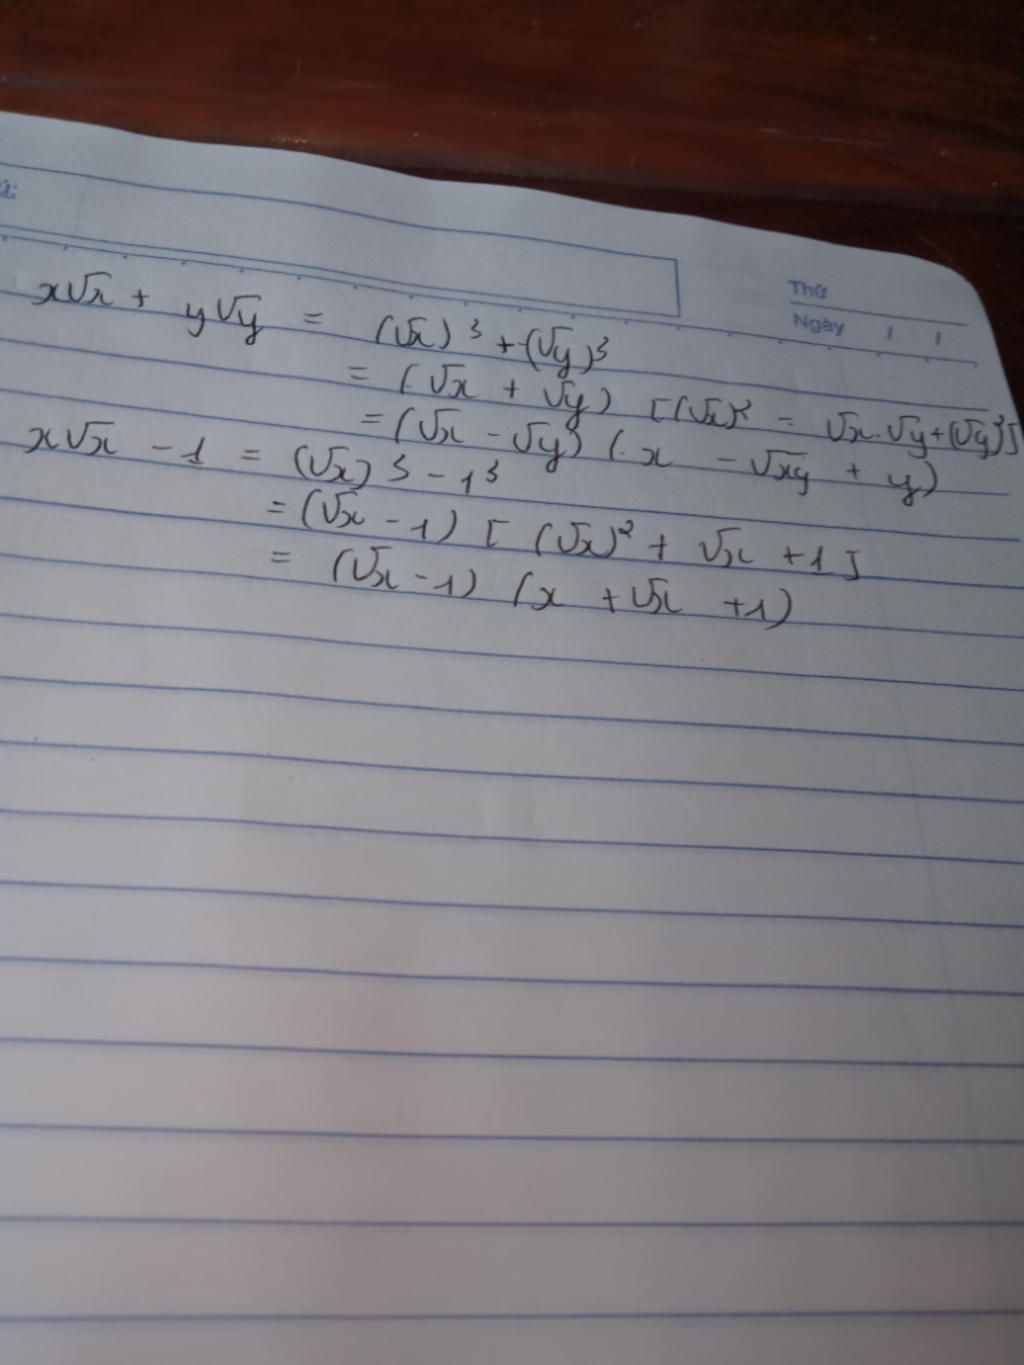 Thứ
Ngày / /
x√x + y√y = (√x)³ + (√y)³
= (√x + √y) [(√x)² - √x.√y + (√y)²]
= (√x - √y) (x - √xy + y)
x√x - 1 = (√x)³ - 1³
= (√x - 1) [(√x)² + √x + 1]
= (√x - 1) (x + √x + 1)